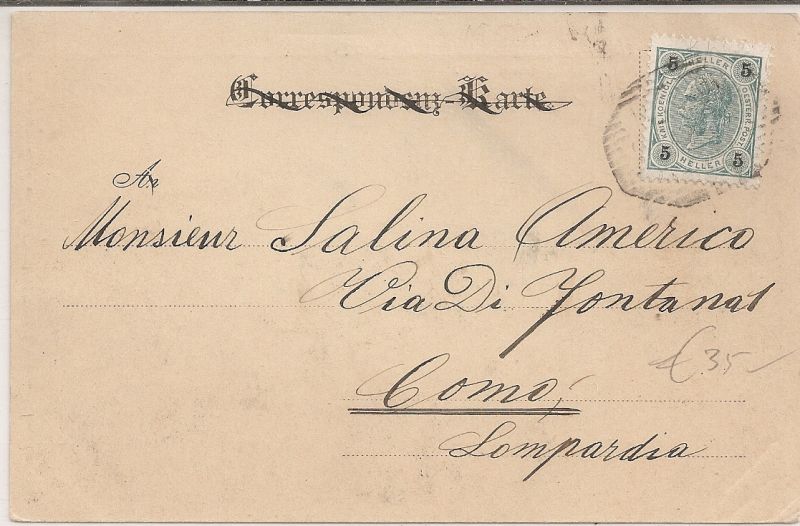 Correspondenz-Karte
5 HELLER 5
KAIS. KOENIGL. OESTERR. POST.
5 HELLER 5
An
Monsieur Salina Americo
Via Di Fontana 1
Como,
Lompardia
€ 35-